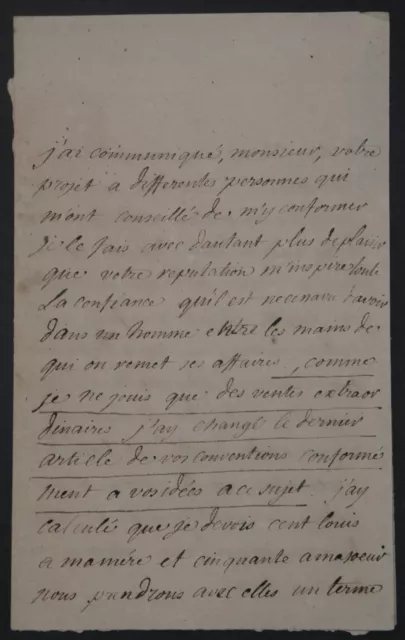 j'ai communiqué, monsieur, votre
projet a differentes personnes qui
m'ont conseillé de m'y conformer
je le fais avec d'autant plus de plaisir
que votre reputation m'inspire toute
La confiance qu'il est necessaire d'avoir
dans un homme entre les mains de
qui on remet ses affaires, comme
je ne jouis que des ventes extraor
dinaires j'ay changé le dernier
article de vos conventions conformé
ment a vos idées a ce sujet. j'ay
calculé que je devois cent louis
a ma mére et cinquante a ma soeur
nous prendrons avec elles un terme